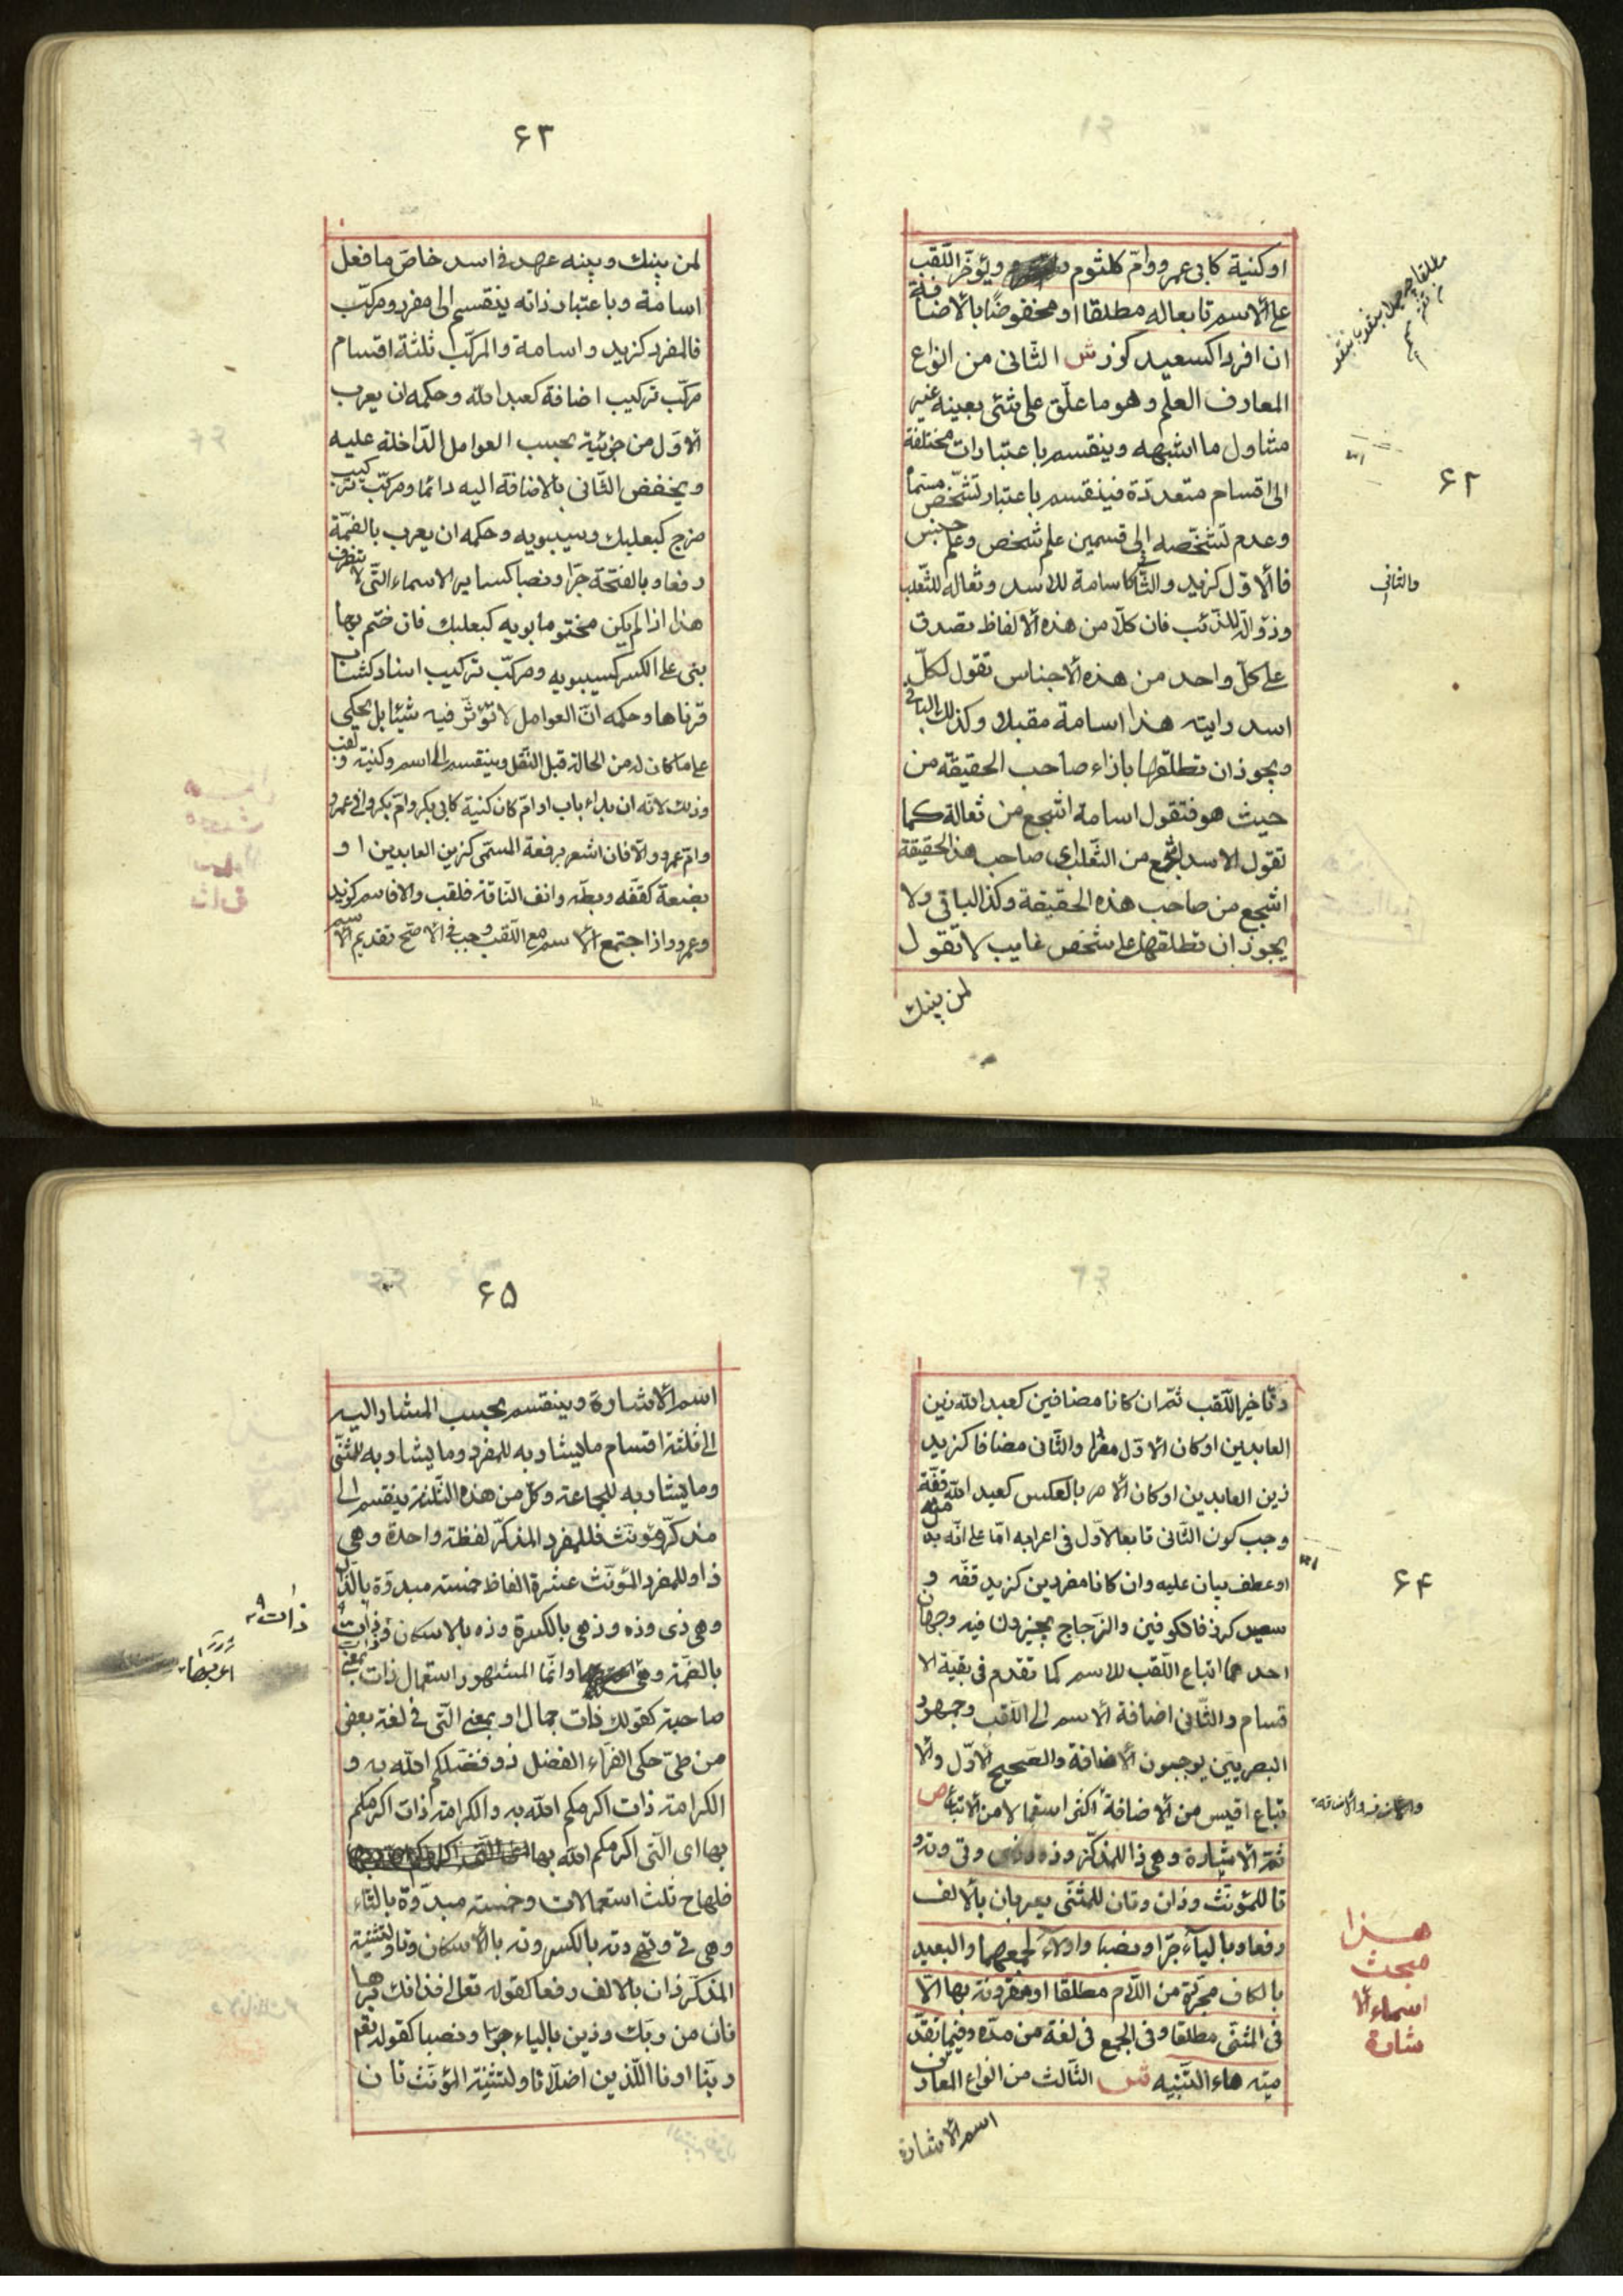 ۶۲
او كنية كابى عمرو وامّ كلثوم ويؤخّر اللّقب
على الاسم تابعا له مطلقا او مخفوضًا بالاضافة
ان افردا كسعيد كرز ش الثّانى من انواع
المعارف العلم وهو ما علّق على شئ بعينه غير
متناول ما اشبهه وينقسم باعتبارات مختلفة
الى اقسام متعدّدة فينقسم باعتبار تشخّص مسمّاه
وعدم تشخّصه الى قسمين علم شخص وعلم جنس
فالاوّل كزيد والثّانى كاسامة للاسد وثعالة للثّعلب
وذوالة للذّئب فان كلّا من هذه الالفاظ يصدق
على كلّ واحد من هذه الاجناس تقول لكلّ
اسد رايته هذا اسامة مقبلا وكذلك الباقى
ويجوز ان تطلقها بازاء صاحب الحقيقة من
حيث هو فتقول اسامة اشجع من ثعالة كما
تقول الاسد اشجع من الثّعلب اى صاحب هذه الحقيقة
اشجع من صاحب هذه الحقيقة وكذا الباقى ولا
يجوز ان تطلقها على شخص غايب لا تقول
لمن بينك
والثانى
۶۳
لمن بينك وبينه عهد فى اسد خاصّ ما فعل
اسامة وباعتبار ذاته ينقسم الى مفرد ومركّب
فالمفرد كزيد واسامة والمركّب ثلثة اقسام
مركّب تركيب اضافة كعبد الله وحكمه ان يعرب
الاوّل من جزئيه بحسب العوامل الدّاخلة عليه
ويخفض الثّانى بالاضافة اليه دائما ومركّب تركيب
مزج كبعلبك وسيبويه وحكمه ان يعرب بالضمّة
رفعا وبالفتحة جرّا ونصبا كساير الاسماء التّى لا تنصرف
هذا اذا لم يكن مختوما بويه كبعلبك فان ختم بها
بنى على الكسر كسيبويه ومركّب تركيب اسناد كشاب
قرناها وحكمه انّ العوامل لا تؤثّر فيه شيئا بل يحكى
على ما كان له من الحالة قبل النّقل وينقسم الى اسم وكنية ولقب
وذلك لانّه ان بدا باب او امّ كان كنية كابى بكر وامّ بكر وابى عمرو
وامّ عمرو والّا فان اشعر برفعة المسمّى كزين العابدين ا و
بضعة كقفّه وبطّه وانف النّاقة فلقب والا فاسم كزيد
وعمرو واذا اجتمع الاسم مع اللّقب وجب فى الاصحّ تقديم الاسم
۶۴
وتاخير اللّقب ثمّ ان كانا مضافين كعبد الله زين
العابدين او كان الاوّل مفردا والثّانى مضافا كزيد
زين العابدين او كان الامر بالعكس كعبد الله قفّة
وجب كون الثّانى تابعا للاوّل فى اعرابه امّا على انّه بدل منه
او عطف بيان عليه وان كانا مفردين كزيد قفّه و
سعيد كرز فالكوفيّن والزّجاج يجيزون فيه وجهان
احدهما اتباع اللّقب للاسم كما تقدم فى بقيّة الا
قسام والثّانى اضافة الاسم الى اللّقب وجمهور
البصريّين يوجبون الاضافة والصّحيح الاوّل والا
تباع اقيس من الاضافة اكثر استعمالا من الاتباع ص
ثمّ الاشارة وهى ذا للمذكّر وذه وذى وتى وته و
تا للمؤنّث وذان وتان للمثنّى يعربان بالالف
رفعا وبالياء جرّا ونصبا واولاء لجمعهما والبعيد
بالكاف مجرّدة من اللّام مطلقا او مقرونة بها الّا
فى المثنّى مطلقا وفى الجمع فى لغة من مدّه وفيما تقدّ
مته هاء التّنبيه ش الثّالث من انواع المعارف
اسم الاشارة
هذا
مبحث
اسماء الا
شارة
۶۵
اسم الاشارة وينقسم بحسب المشار اليه
الى ثلثة اقسام ما يشار به للمفرد وما يشار به للمثنّى
وما يشار به للجماعة وكلّ من هذه الثّلثة ينقسم الى
مذكّر ومؤنّث فللمفرد المذكّر لفظة واحدة وهى
ذا وللمفرد المؤنّث عشرة الفاظ خمسة مبدوّة بالذّال
وهى ذى وذه وذهى بالكسرة وذه بالاسكان وذات
بالضّمّة وهى وانّما المشهور استعمال ذات بمعنى
صاحبة كقولك ذات جمال او بمعنى الّتى فى لغة بعض
من طىّ حكى الفرّاء الفضل ذو فضّلكم الله به و
الكرامة ذات اكرمكم الله به والكرامة ذات اكرمكم
بها اى الّتى اكرمكم الله بها
فلها ح ثلث استعمالات وخمسة مبدوّة بالتّاء
وهى تى وتهى وته بالكسر وته بالاسكان وتا ولتثنية
المذكّر ذان بالالف رفعا كقوله تعالى فذانك برها
نان من ربّك وذين بالياء جرّا ونصبا كقوله تعم
ربّنا ارنا اللّذين اضلّانا ولتثنية المؤنّث تان
ذات